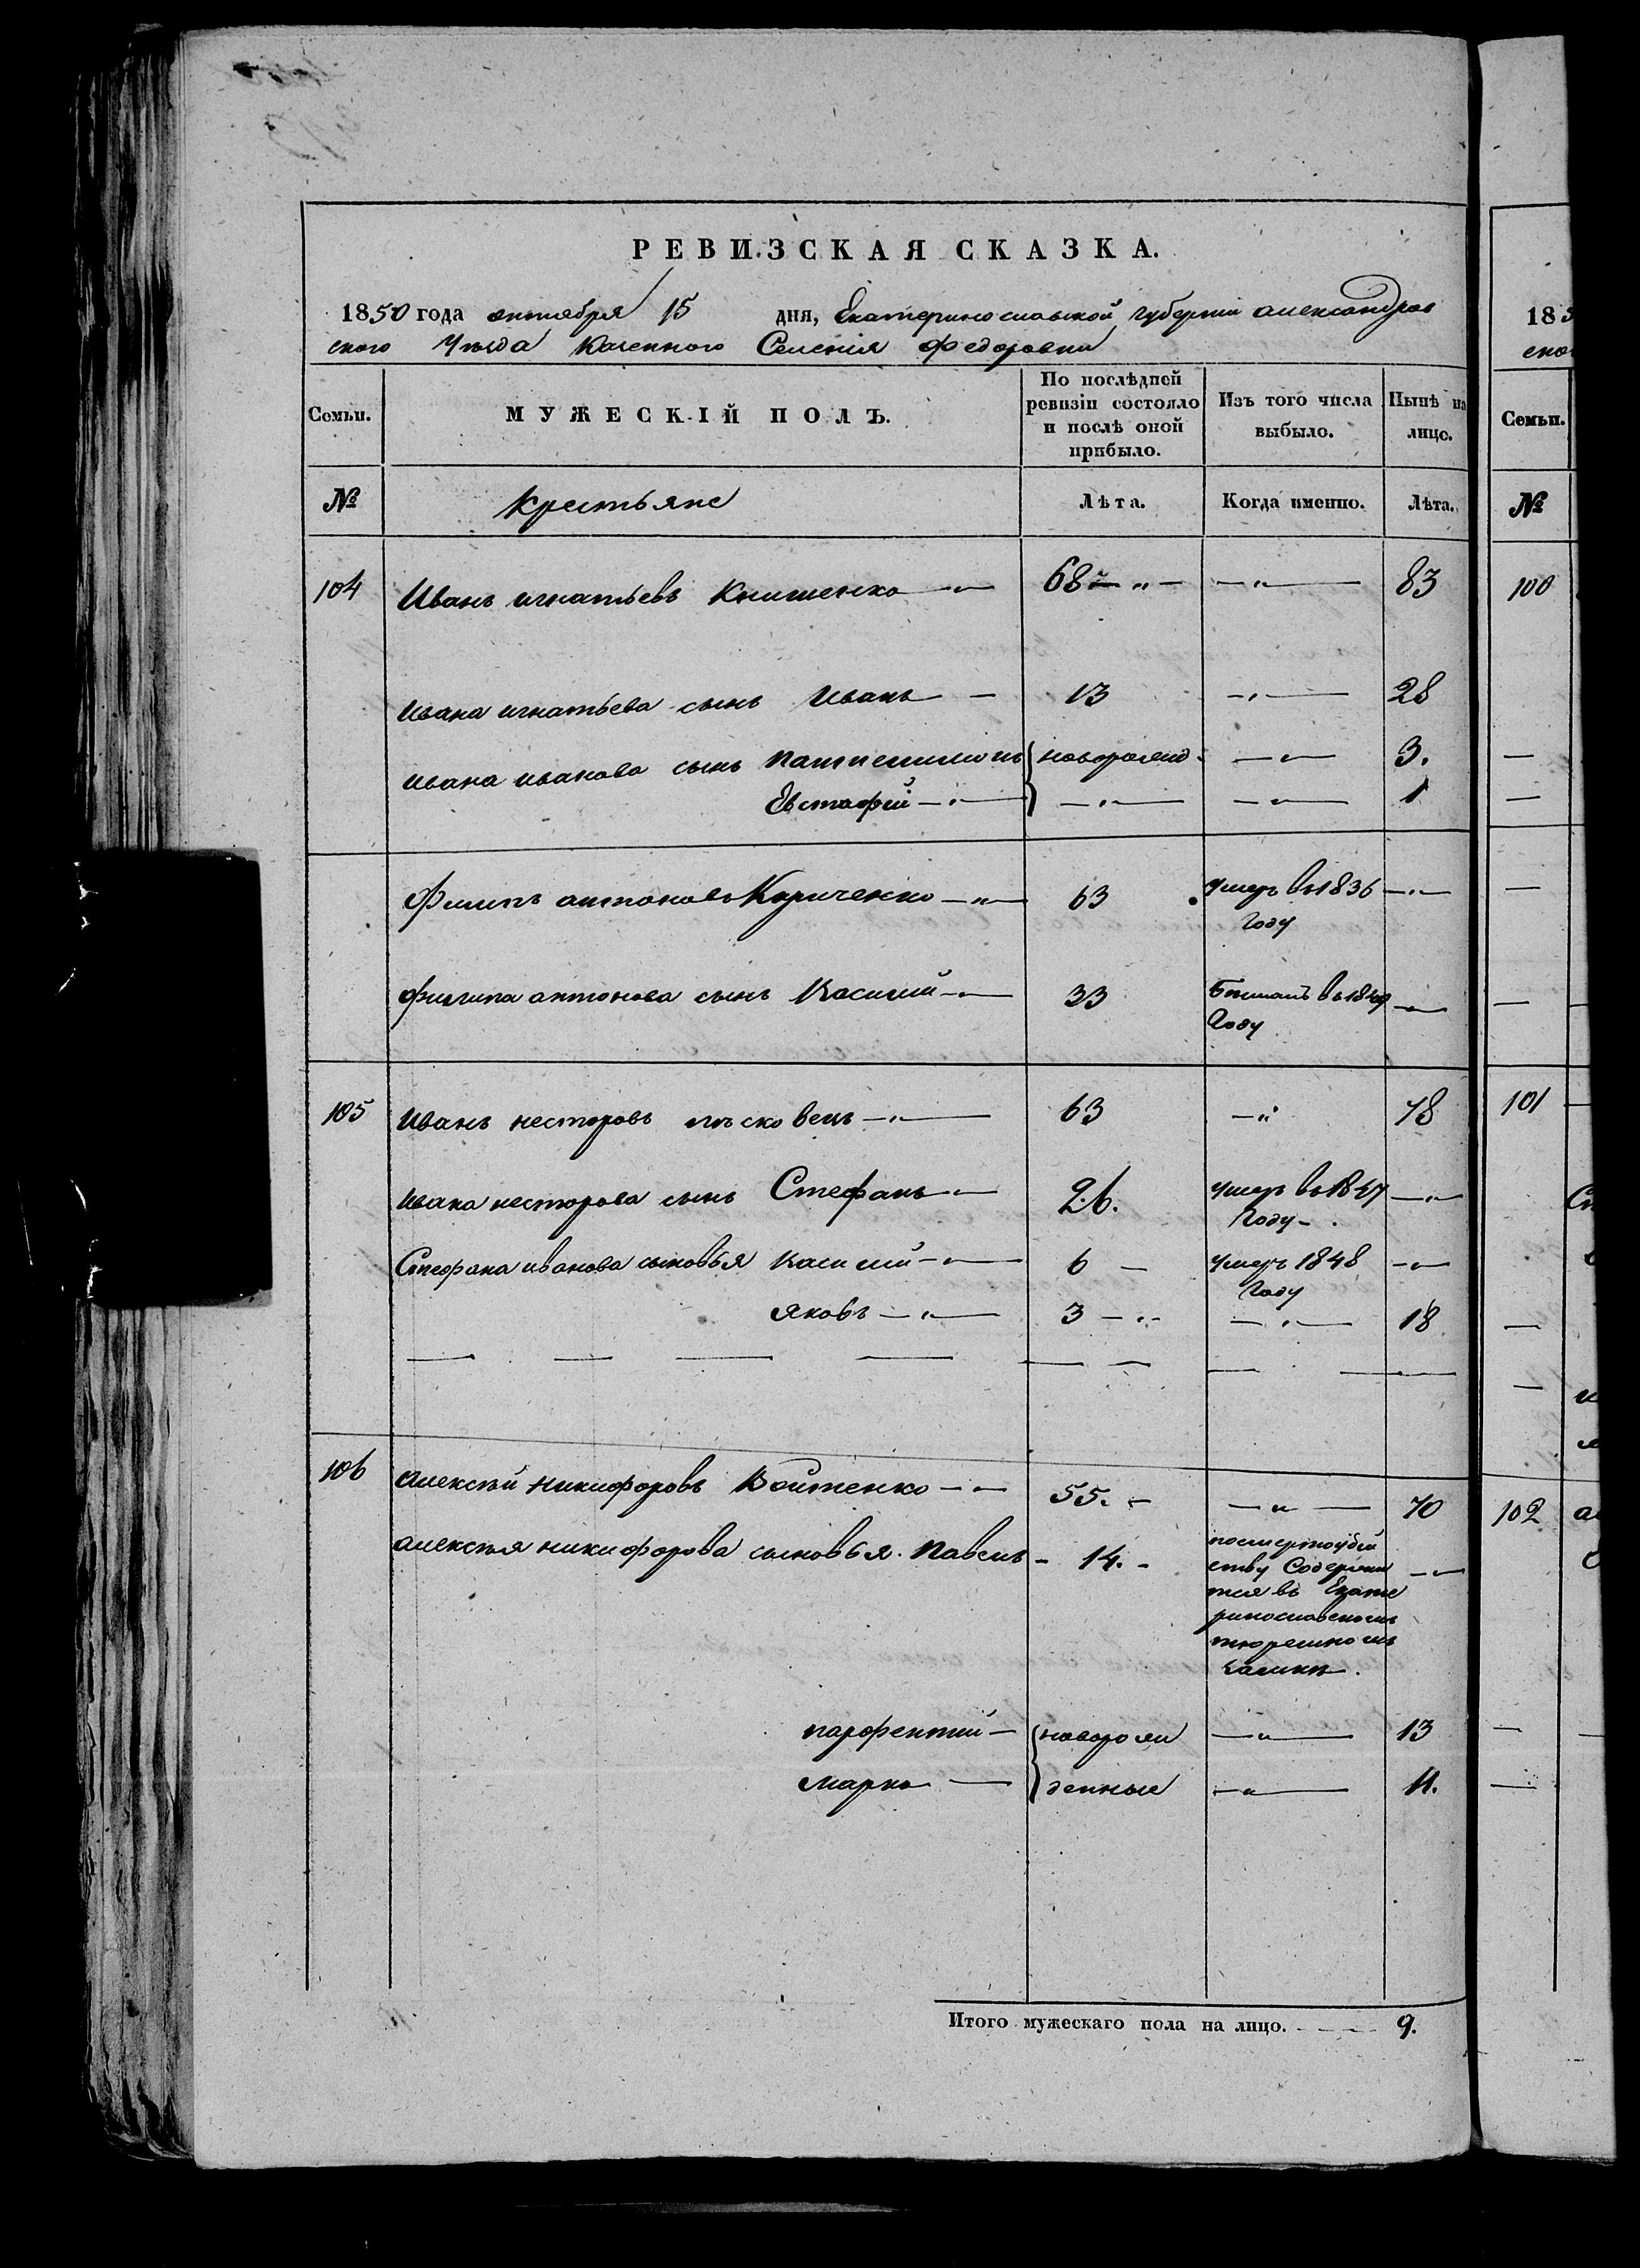 РЕВИЗСКАЯ СКАЗКА.
1850 года октября 15 дня, Екатеринославской губернии александров
ского Уѣзда Казенного Селенія Федоровки
Семьи. МУЖЕСКІЙ ПОЛЪ. По послѣдней ревизіи состояло и послѣ оной прибыло. Изъ того числа выбыло. Нынѣ на лицо.
№ Крестьяне Лѣта. Когда именно. Лѣта.
104 Иванъ игнатьевъ Книшенко — 68 — 83
Ивана игнатьева сынъ Иванъ — 13 — 28
Ивана иванова сынъ Пантелимонъ новорожд. — 3.
Евстафій — — — 1
Филипъ антоновъ Кириченко — 63 умеръ въ 1836 —
году
Филипа антонова сынъ Василий — 33 въ 184 —
году
105 Иванъ несторовъ пѣсковецъ — 63 — 78
Ивана несторова сынъ Стефанъ — 26. умеръ въ 1847 —
году
Стефана иванова сыновья Василий — 6 — умеръ 1848 —
году
Яковъ — 3 — — 18
106 Алексѣй Никифоровъ Войтенко — 55. — — 70
Алексѣя никифорова сыновья. Павелъ — 14. — посмертоубій
ству Содержи —
тся въ Екате
ринославскомъ
тюремномъ
замкѣ.
парфентий — новорож — 13
марко — денные — 11.
Итого мужескаго пола на лицо. 9.
185
ско
Семьи.
№
100
101
102